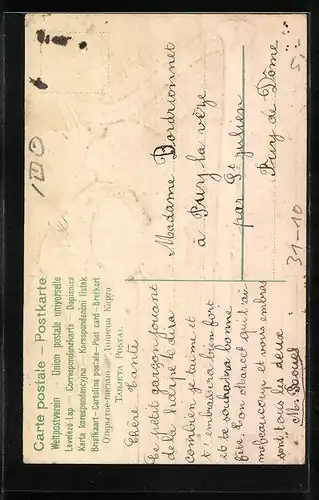 Carte postale – Postkarte
Weltpostverein – Union postale universelle
Levelező-Lap – Correspondenzkarte – Dopisnice
Karta korespondencyjna – Korespondenční lístek
Briefkaart – Cartolina postale – Post card – Brefkort
Открытое письмо –
TARJETA POSTAL
Chère Tante
Ce petit garçon jouant
de la harpe te dira
combien je t'aime et
t'embrassera bien fort
et te souhaitra bonne
fête. Ton Marcel qui t'ai
me beaucoup et vous embras
sent tous les deux
M.
Madame
à Puy la vèze
par St Julien
Puy de Dôme
100
31-10
5,-